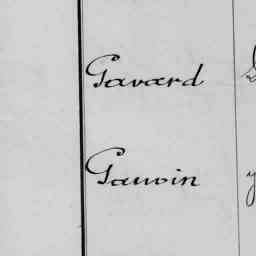 Gavard
Gauvin